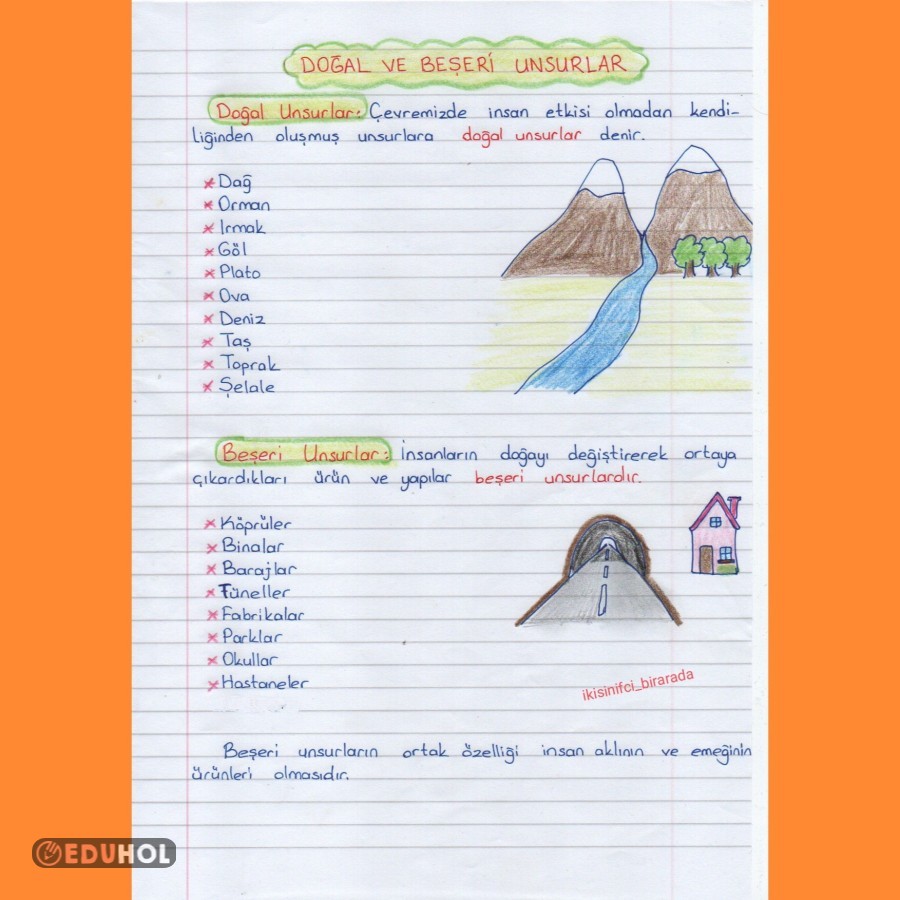 DOĞAL VE BEŞERİ UNSURLAR
Doğal Unsurlar: Çevremizde insan etkisi olmadan kendi-
liğinden oluşmuş unsurlara doğal unsurlar denir.
x Dağ
x Orman
x Irmak
x Göl
x Plato
x Ova
x Deniz
x Taş
x Toprak
x Şelale
Beşeri Unsurlar: İnsanların doğayı değiştirerek ortaya
çıkardıkları ürün ve yapılar beşeri unsurlardır.
x Köprüler
x Binalar
x Barajlar
x Tüneller
x Fabrikalar
x Parklar
x Okullar
x Hastaneler
ikisinifci_birarada
Beşeri unsurların ortak özelliği insan aklının ve emeğinin
ürünleri olmasıdır.
EDUHOL